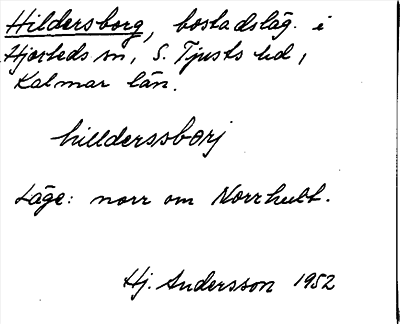 Hildersborg, bostadsläg. i
Hjorteds sn, S. Tjusts hd,
Kalmar län.
hilldersborj
Läge: norr om Norrhult.
Hj. Andersson 1952